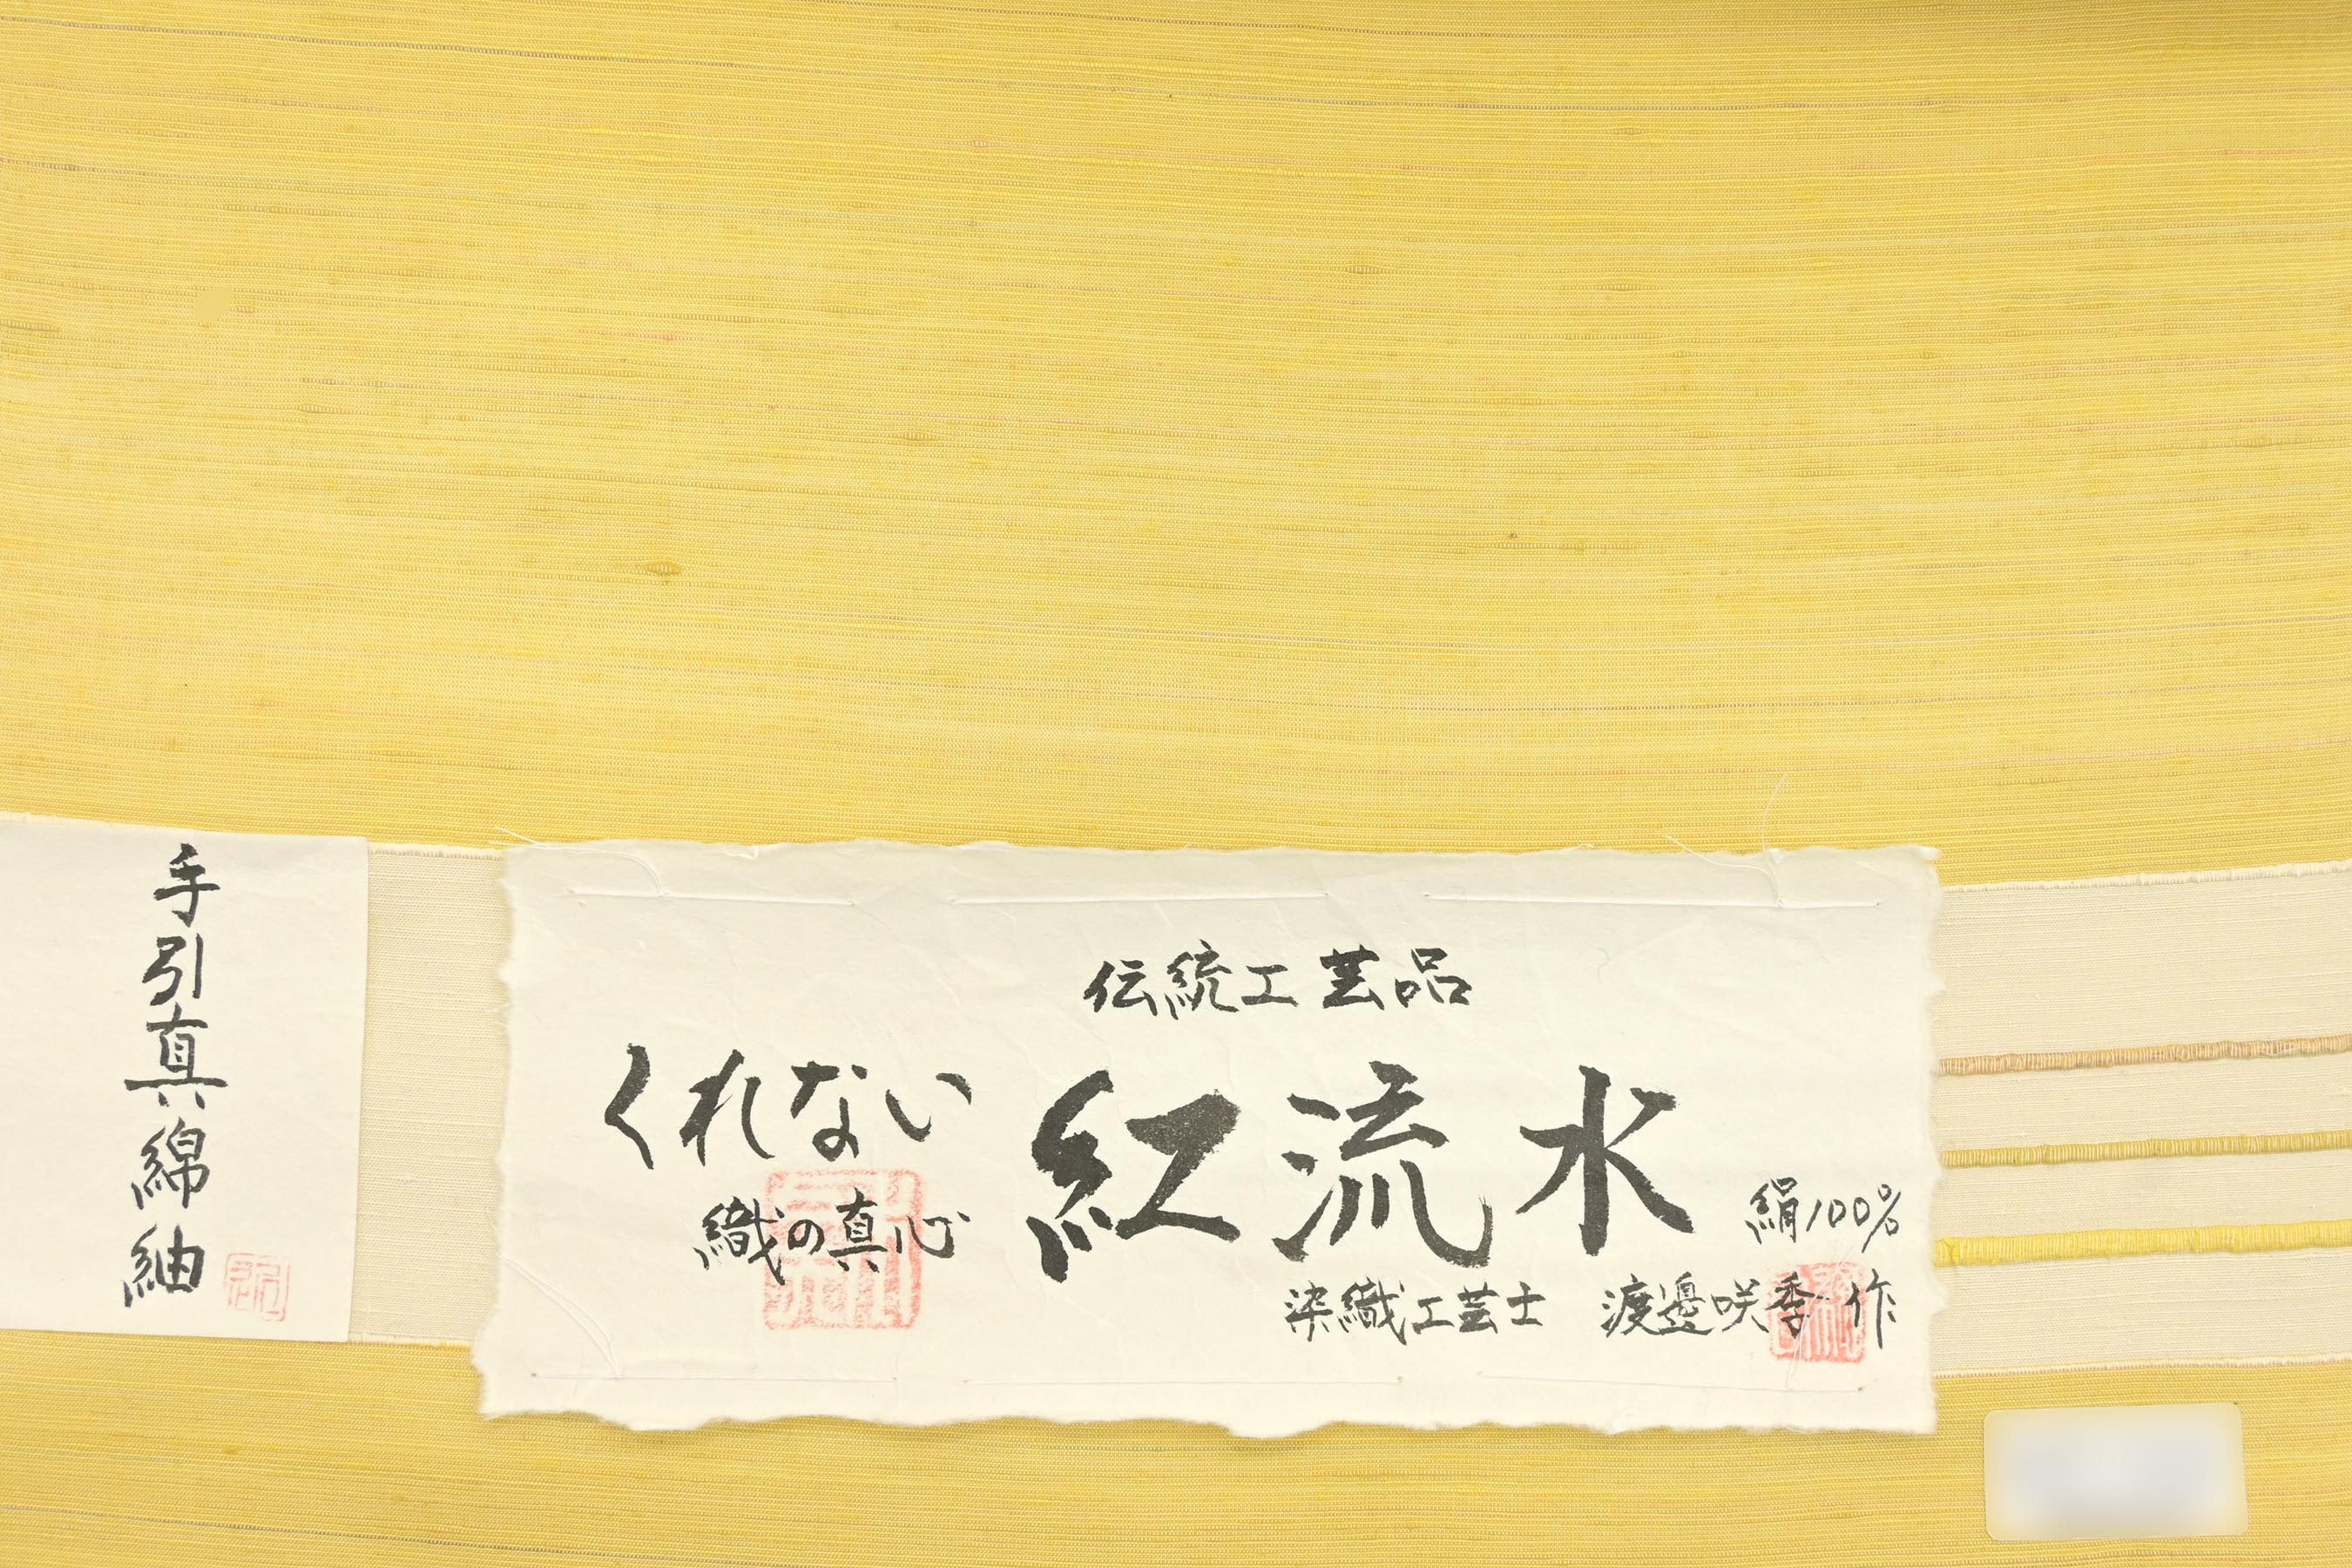 手引真綿紬
伝統工芸品
くれない 紅流水
織の真心
絹100%
染織工芸士 渡邊咲季 作